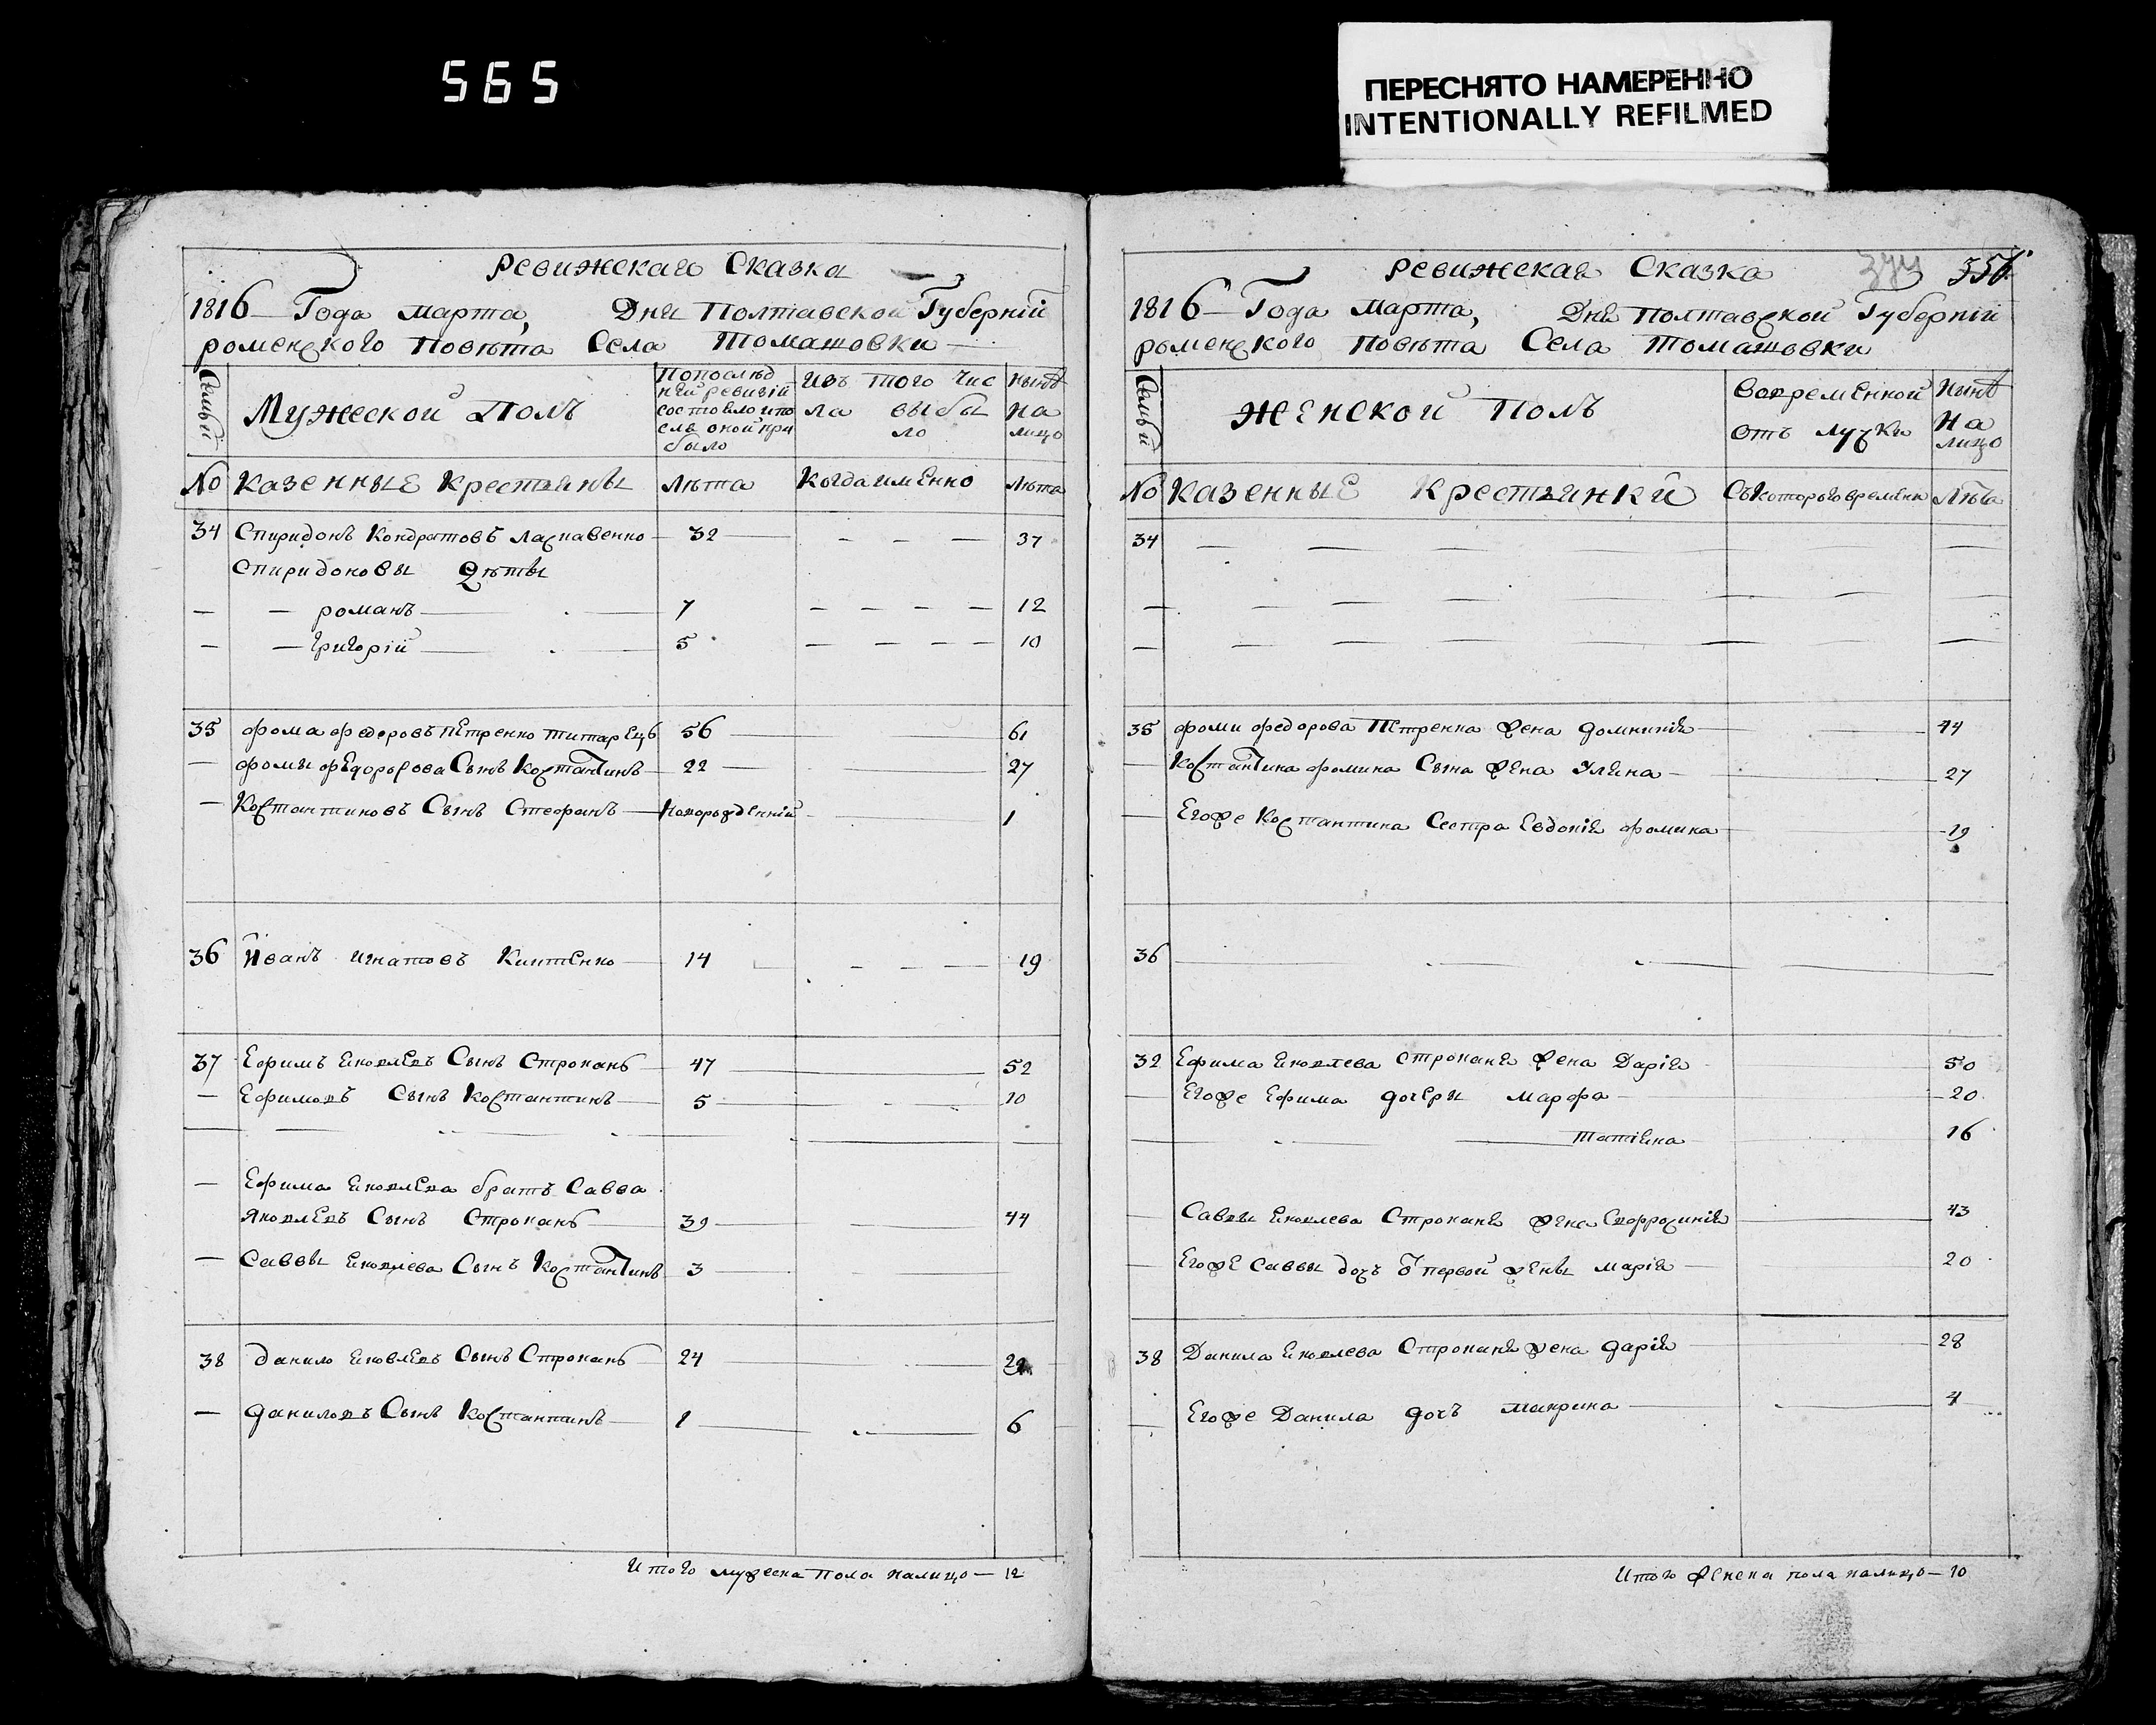 565
ПЕРЕСНЯТО НАМЕРЕННО
INTENTIONALLY REFILMED
Ревижская Сказка
1816 Года марта, Дня Полтавской Губерніи
роменского Повѣта Села Томашовки
Семьи
Мужеской Полъ
Попослѣд
ней ревизіи
состояло и по
слѣ оной при
было
Изъ того чис
ла выбы
ло
Нынѣ
на
лицо
No Казенные Крестьяны Лѣта Когда именно Лѣта
34 Спиридонъ Кондратовъ 32 37
Спиридоновы Дѣты
романъ 7 12
Григорій 5 10
35 фома федоровъ Петренко Титарец 56 61
фомы Сынъ Костантинъ 22 27
Костантиновъ Сынъ Стефанъ Новорожденній 1
36 Иванъ игнатовъ 14 19
37 Ефимъ Яковлевъ Сынъ Строкань 47 52
Ефимовъ Сынъ Костантинъ 5 10
Ефима Яковлева братъ Савва
Яковлевъ Сынъ Строкань 39 44
Саввы Яковлева Сынъ Костантинъ 3
38 Данило Яковлевъ Сынъ Строкань 24 29
даниловъ Сынъ Костантинъ 1 6
Итого мужеска пола налицо — 12
Ревижская Сказка 356
1816 Года Марта, Дня Полтавской Губерніи
роменского Повѣта Села Томашовки
Семьи
Женской Полъ
Вовременной
отъ лучки
Нынѣ
На
лицо
No Казенные Крестьянки Съ которого времени Лѣта
34
35 фоми федорова Петренка жена домникія 44
Костантина фомина Сына жена Уляна 27
Егоже Костантина Сестра Евдокія фомина 19
36
32 Ефима Яковлева Строканя жена Дарія 50
Егоже Ефима дочеры марфа 20
татіяна 16
Саввы Яковлева Строканя жена 43
Егоже Саввы дочъ от первой жены марія 20
38 Данила Яковлева Строканя жена дарія 28
Егоже Данила дочъ макрина 4
Итого женска пола налицо — 10